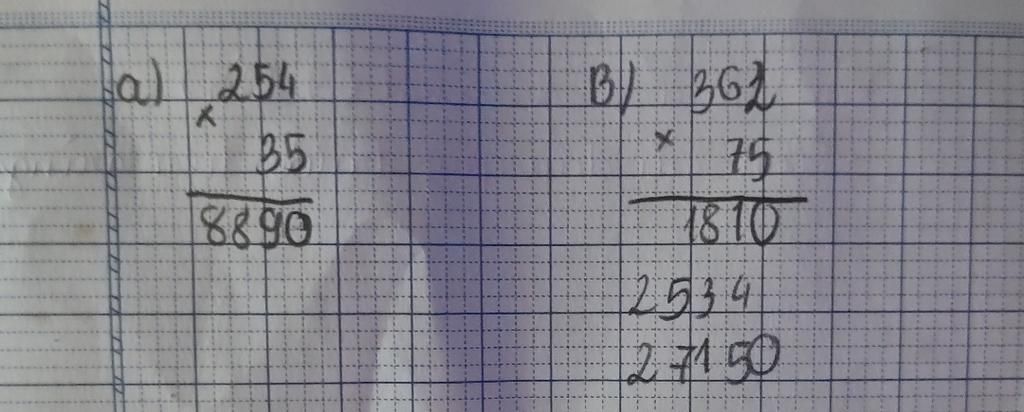 a) 254
×
35
8890
B) 362
×
75
1810
2534
27150